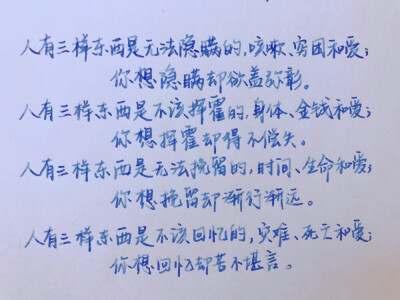 人有三样东西是无法隐瞒的，咳嗽、穷困和爱；
你想隐瞒却欲盖弥彰。
人有三样东西是不该挥霍的，身体、金钱和爱；
你想挥霍却得不偿失。
人有三样东西是无法挽留的，时间、生命和爱；
你想挽留却渐行渐远。
人有三样东西是不该回忆的，灾难、死亡和爱；
你想回忆却苦不堪言。